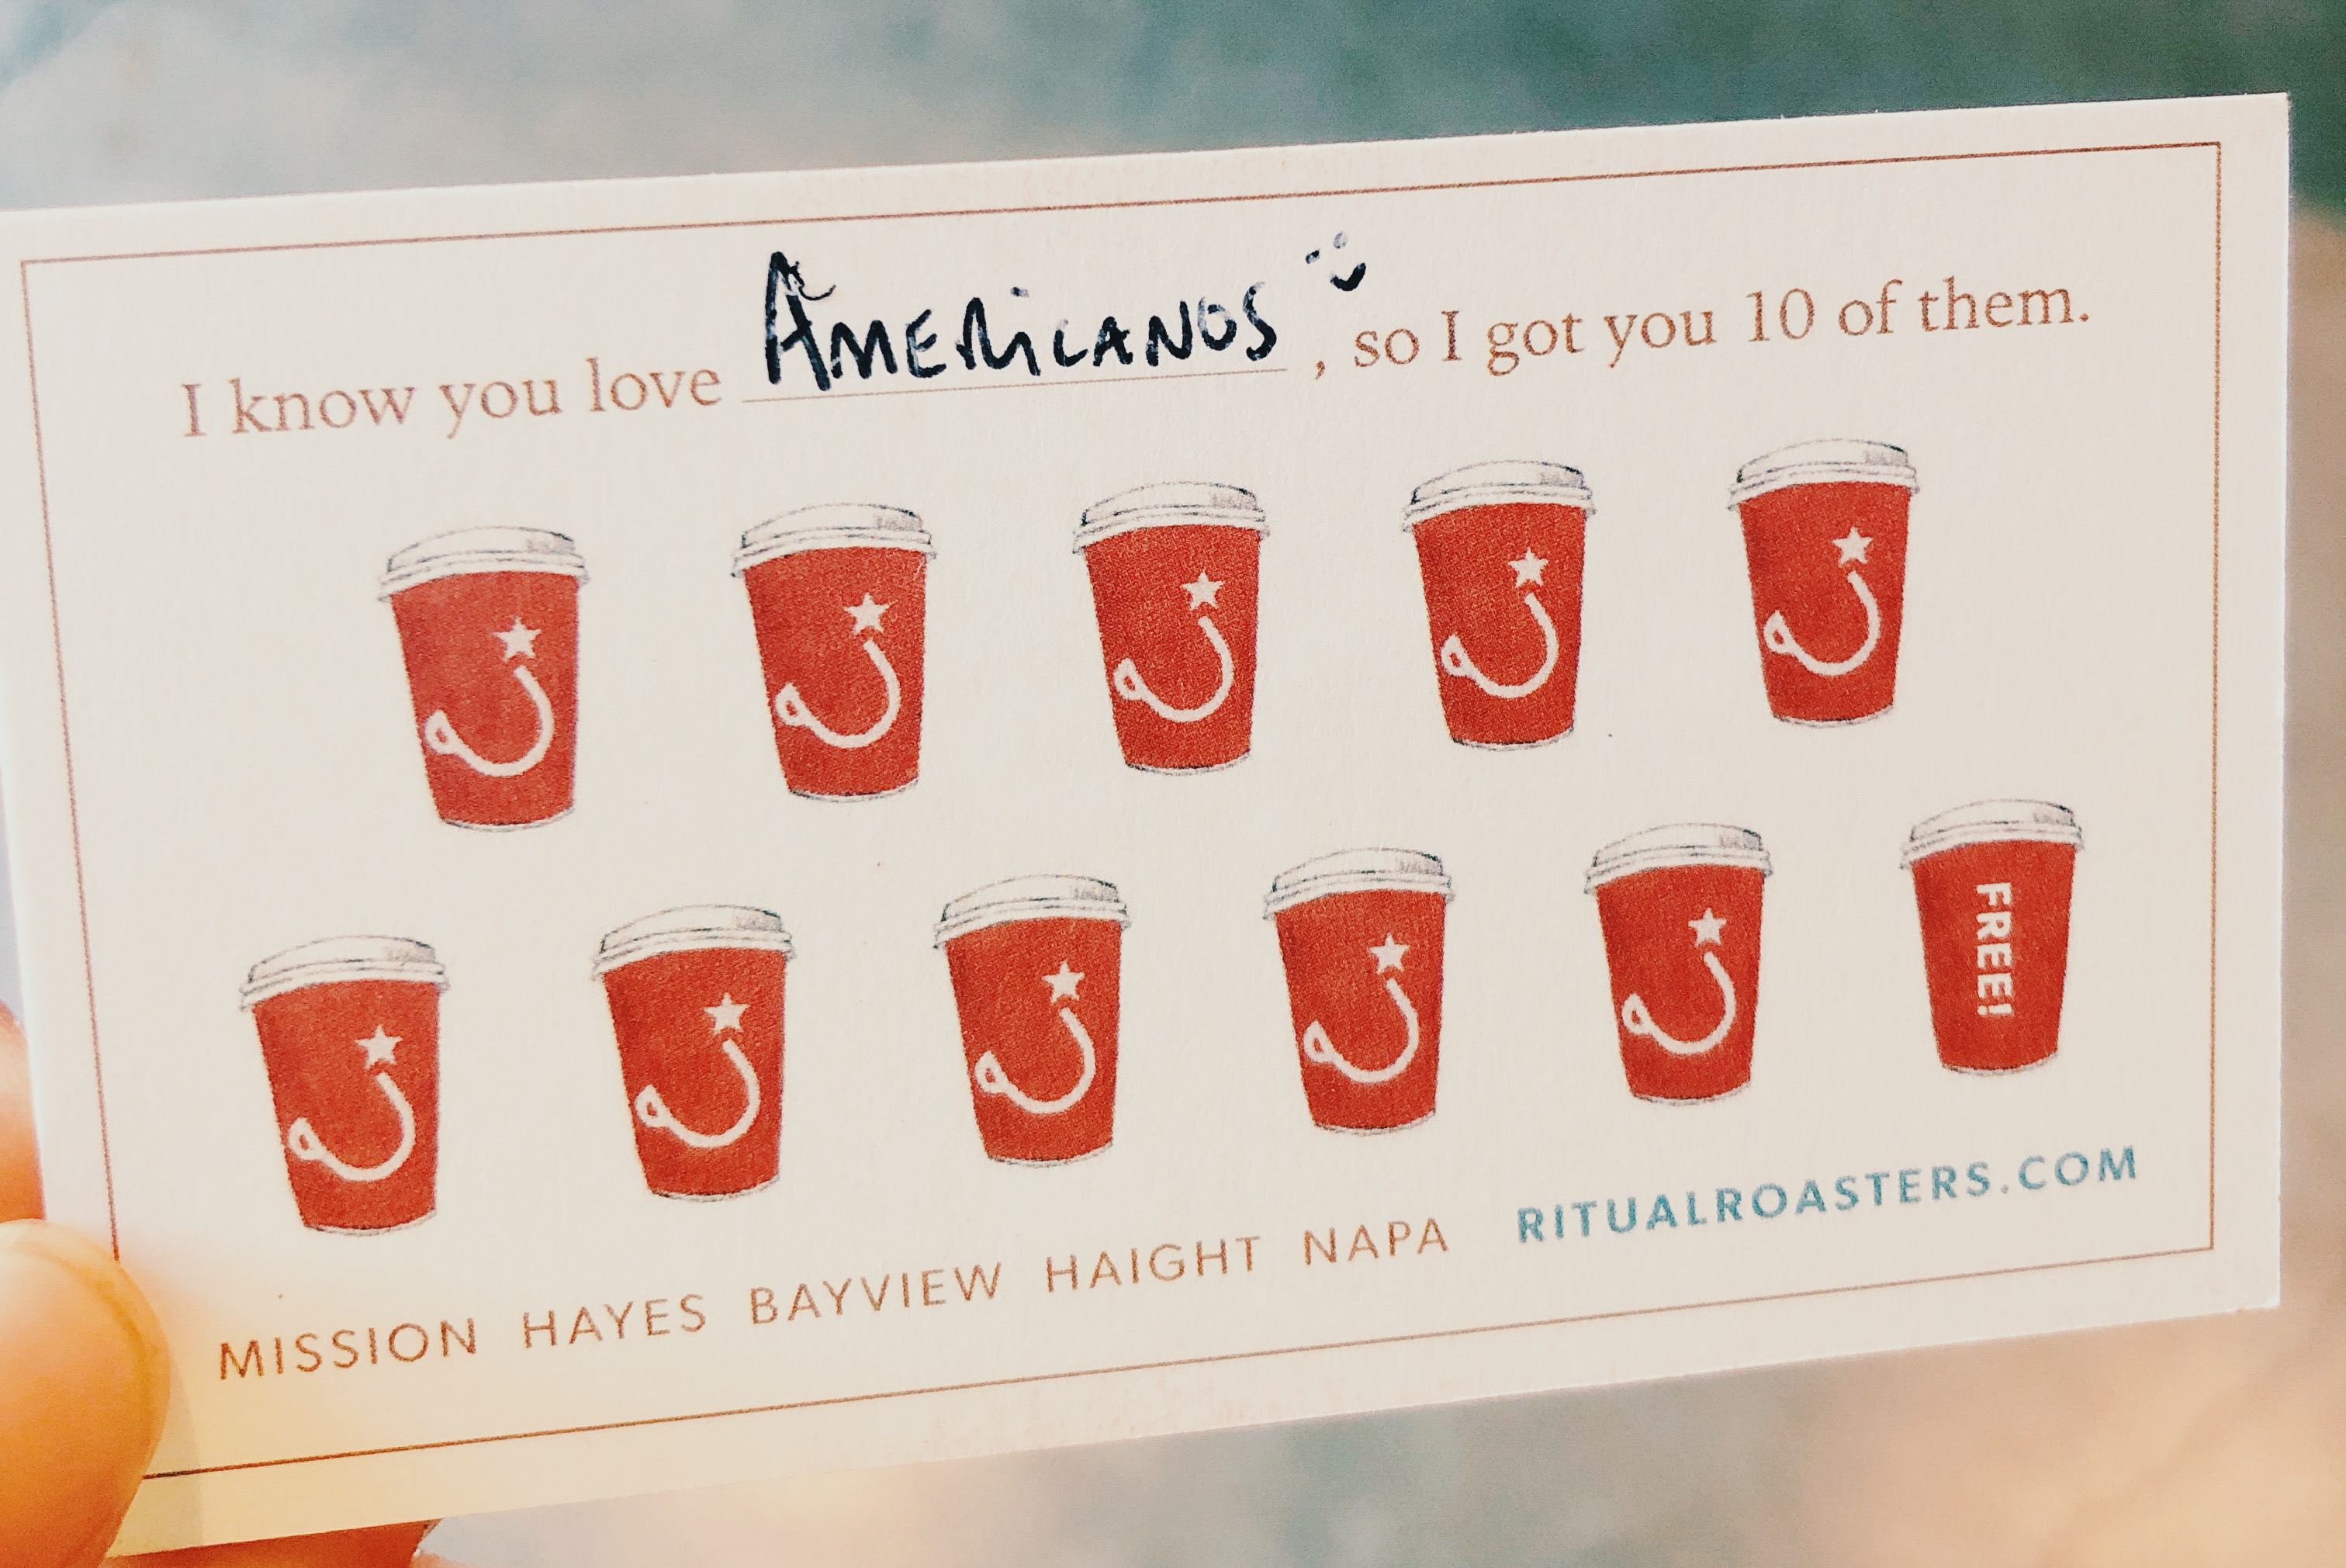 I know you love AMERiCANOS :) , so I got you 10 of them.
FREE!
MISSION HAYES BAYVIEW HAIGHT NAPA RITUALROASTERS.COM